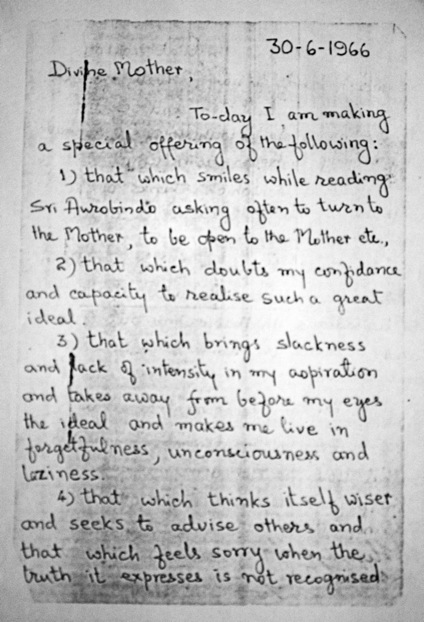 30-6-1966
Divine Mother,
To-day I am making
a special offering of the following:
1) that which smiles while reading
Sri Aurobindo asking often to turn to
the Mother, to be open to the Mother etc.,
2) that which doubts my confidance
and capacity to realise such a great
ideal.
3) that which brings slackness
and lack of intensity in my aspiration
and takes away from before my eyes
the ideal and makes me live in
forgetfulness, unconsciousness and
laziness.
4) that which thinks itself wiser
and seeks to advise others and
that which feels sorry when the
truth it expresses is not recognised.